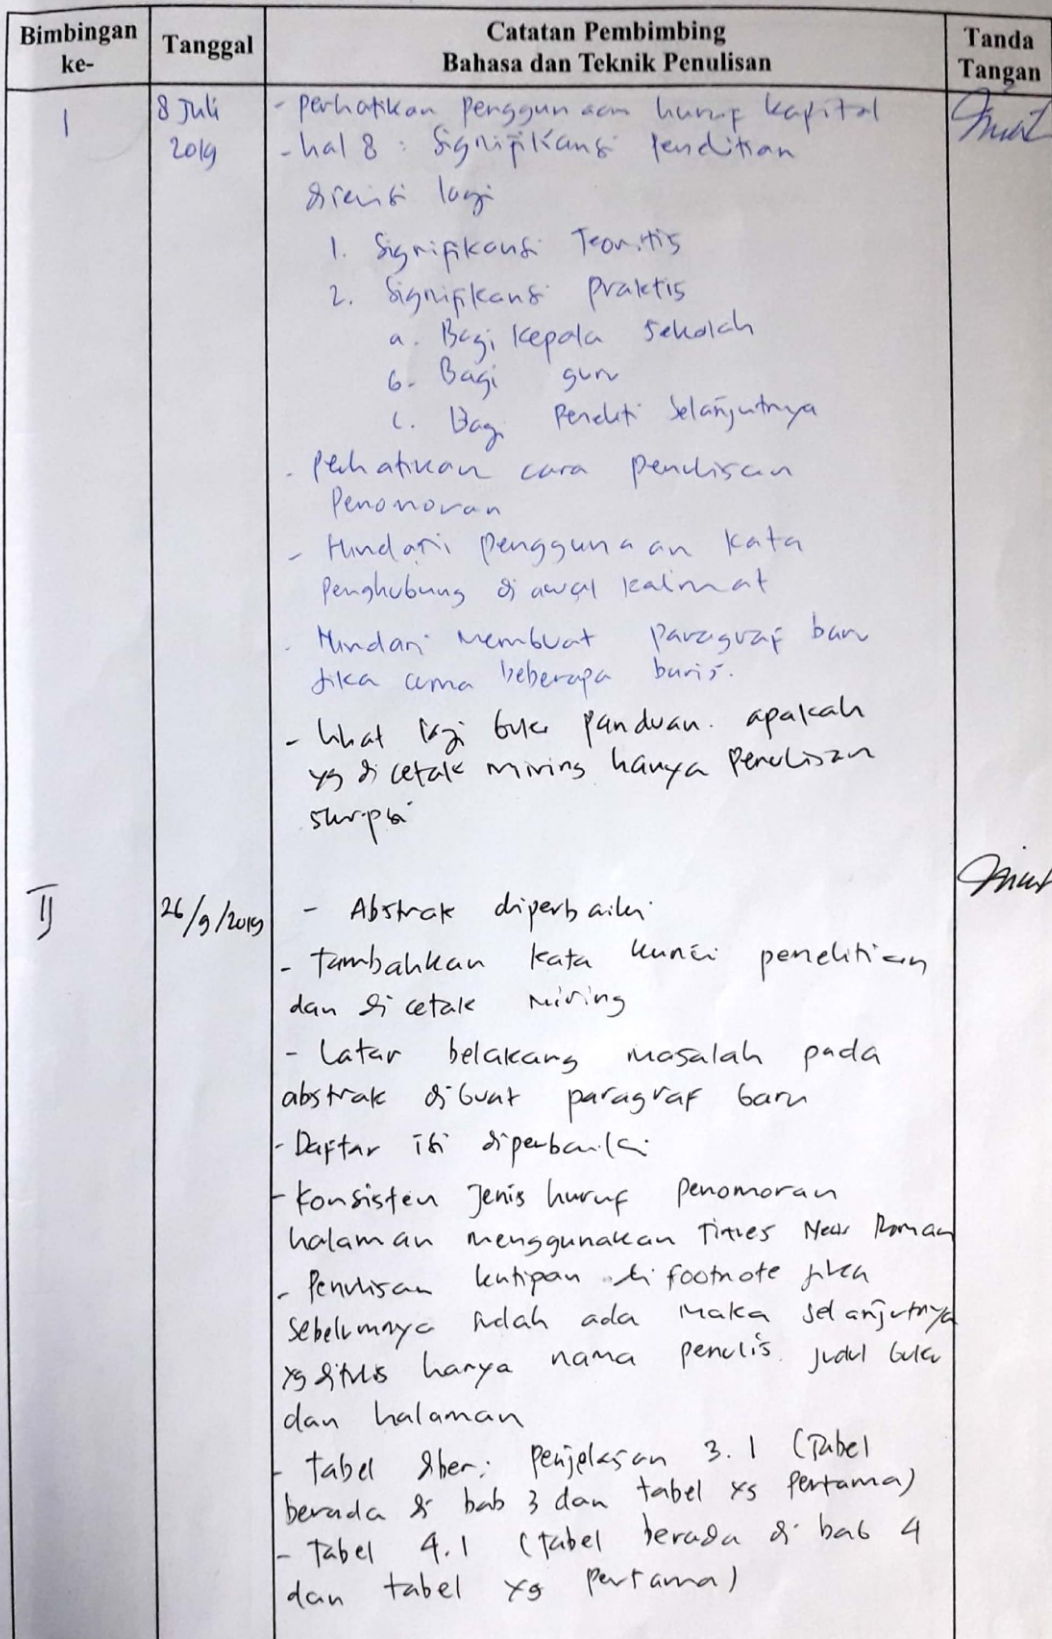 Bimbingan ke-
Tanggal
Catatan Pembimbing
Bahasa dan Teknik Penulisan
Tanda Tangan
I
8 Juli
2019
- Perhatikan penggunaan huruf kapital
- hal 8 : Signifikansi Penelitian
direvisi lagi
1. Signifikansi Teoritis
2. Signifikansi praktis
a. Bagi Kepala Sekolah
b. Bagi guru
c. Bagi Peneliti Selanjutnya
- Perhatikan cara penulisan
Penomoran
- Hindari penggunaan kata
Penghubung di awal kalimat
- Hindari membuat paragraf baru
jika cuma beberapa baris.
- lihat lagi buku panduan. apakah
yg di cetak miring hanya Penulisan
skripsi
II
26/9/2019
- Abstrak diperbaiki
- Tambahkan kata kunci penelitian
dan di cetak miring
- Latar belakang masalah pada
abstrak dibuat paragraf baru
- Daftar isi diperbaiki
- Konsisten Jenis huruf penomoran
halaman menggunakan Times New Roman
- Penulisan kutipan di footnote jika
sebelumnya sudah ada maka selanjutnya
yg ditulis hanya nama penulis. judul buku
dan halaman
- tabel diberi penjelasan 3.1 (Tabel
berada di bab 3 dan tabel yg Pertama)
- Tabel 4.1 (tabel berada di bab 4
dan tabel yg Pertama)